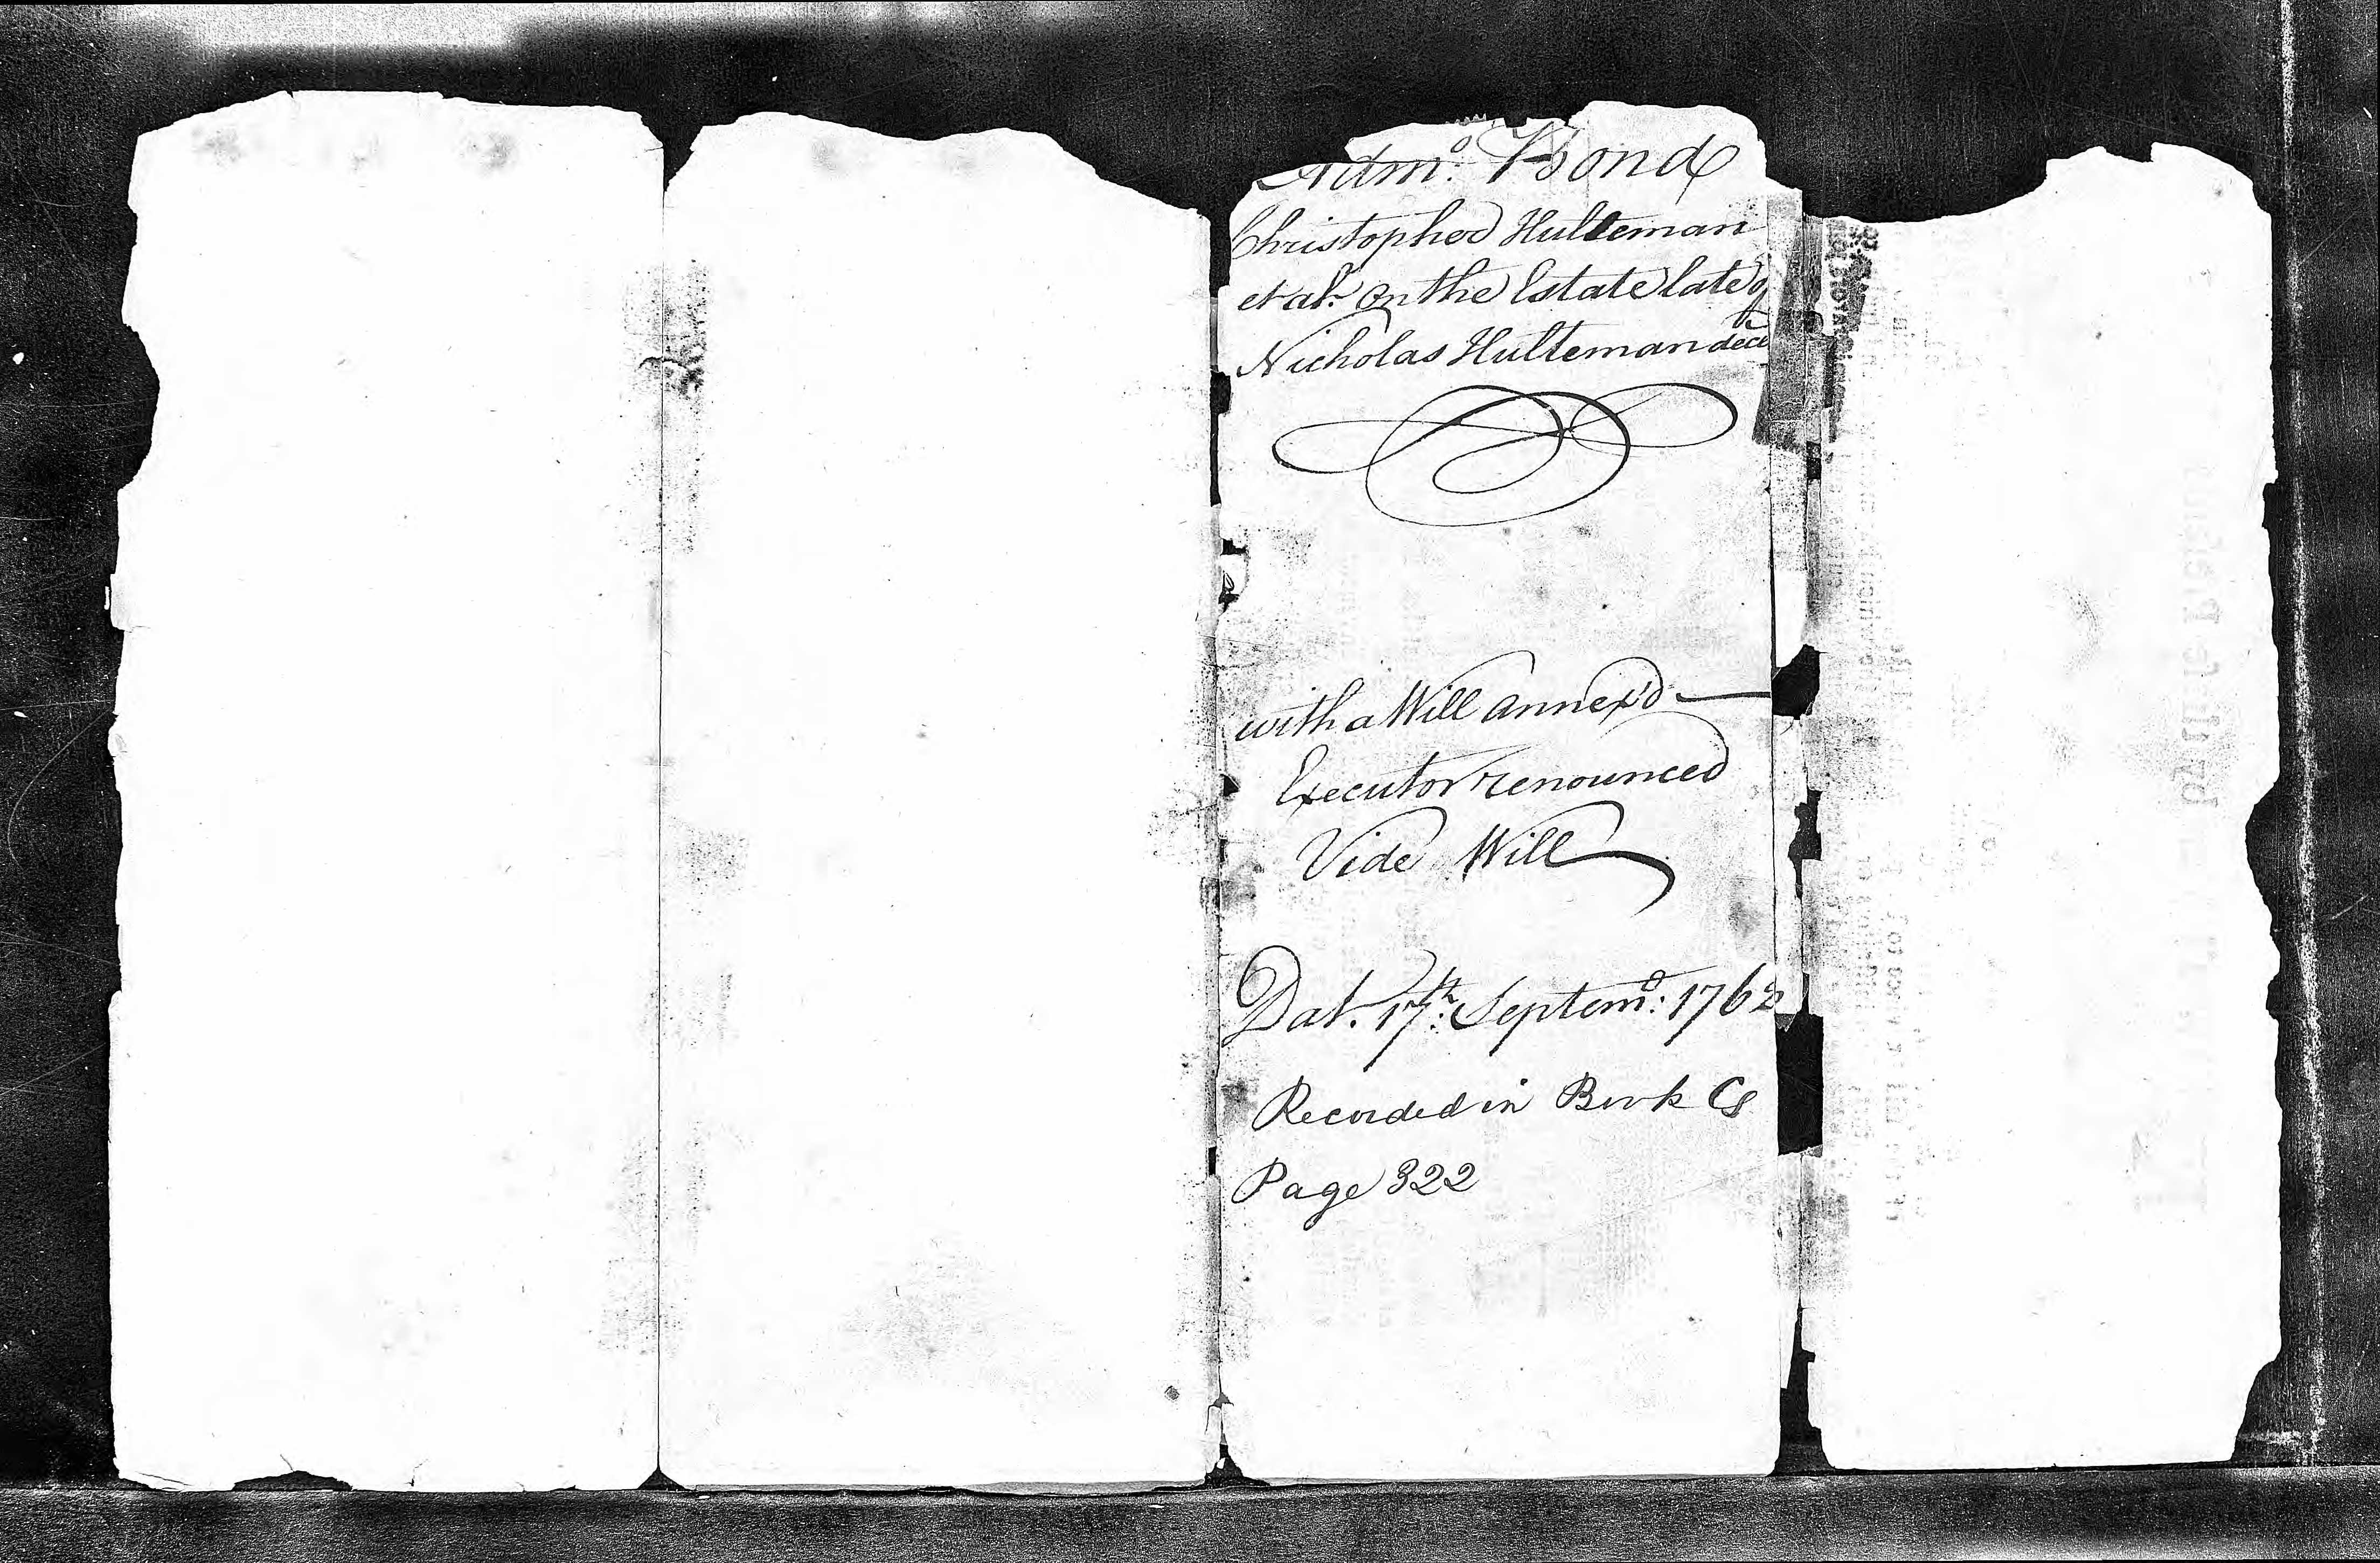 Adm.º Bond
Christopher Hulteman
et al.ˢ on the Estate late of
Nicholas Hulteman dece
with a Will annex'd
Executor renounced
Vide Will
Dat. 17.ᵗʰ Septem.º: 1762
Recorded in Book
Page 322